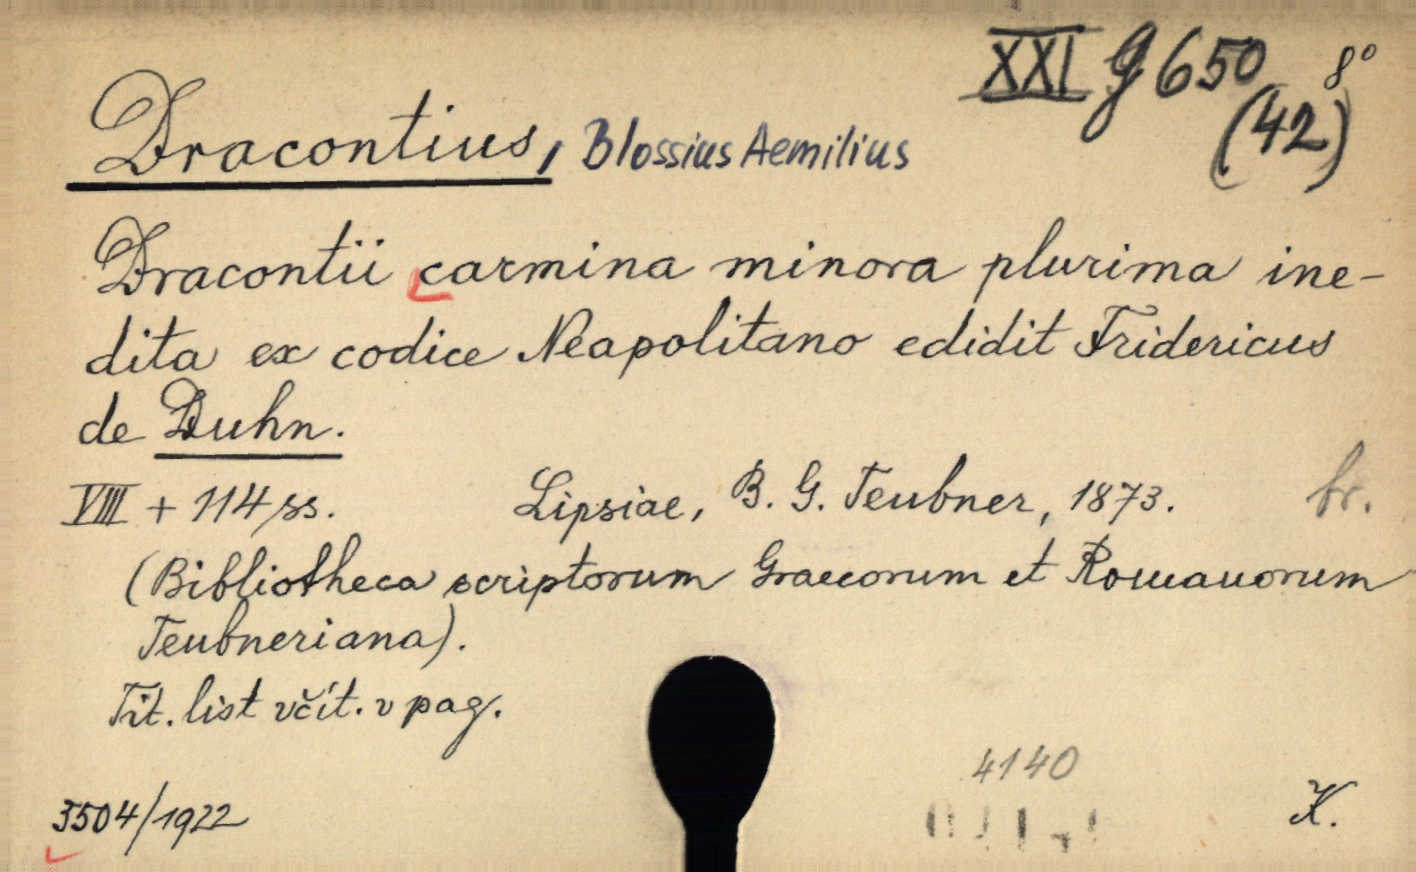 XXI G 650 8°
(42)
Dracontius, Blossius Aemilius
Dracontii carmina minora plurima ine-
dita ex codice Neapolitano edidit Fridericus
de Duhn.
VIII + 114 ss. Lipsiae, B. G. Teubner, 1873. br.
(Bibliotheca scriptorum Graecorum et Romanorum
Teubneriana).
Tit. list včít. v pag.
4140
3504/1922 K.